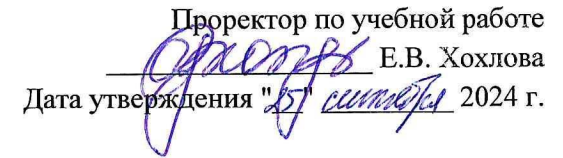 Проректор по учебной работе
Е.В. Хохлова
Дата утверждения "25" сентября 2024 г.